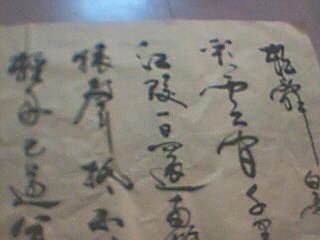 朝辭白帝
彩雲間千里
江陵一日還兩
猿聲啼不
輕舟已過萬